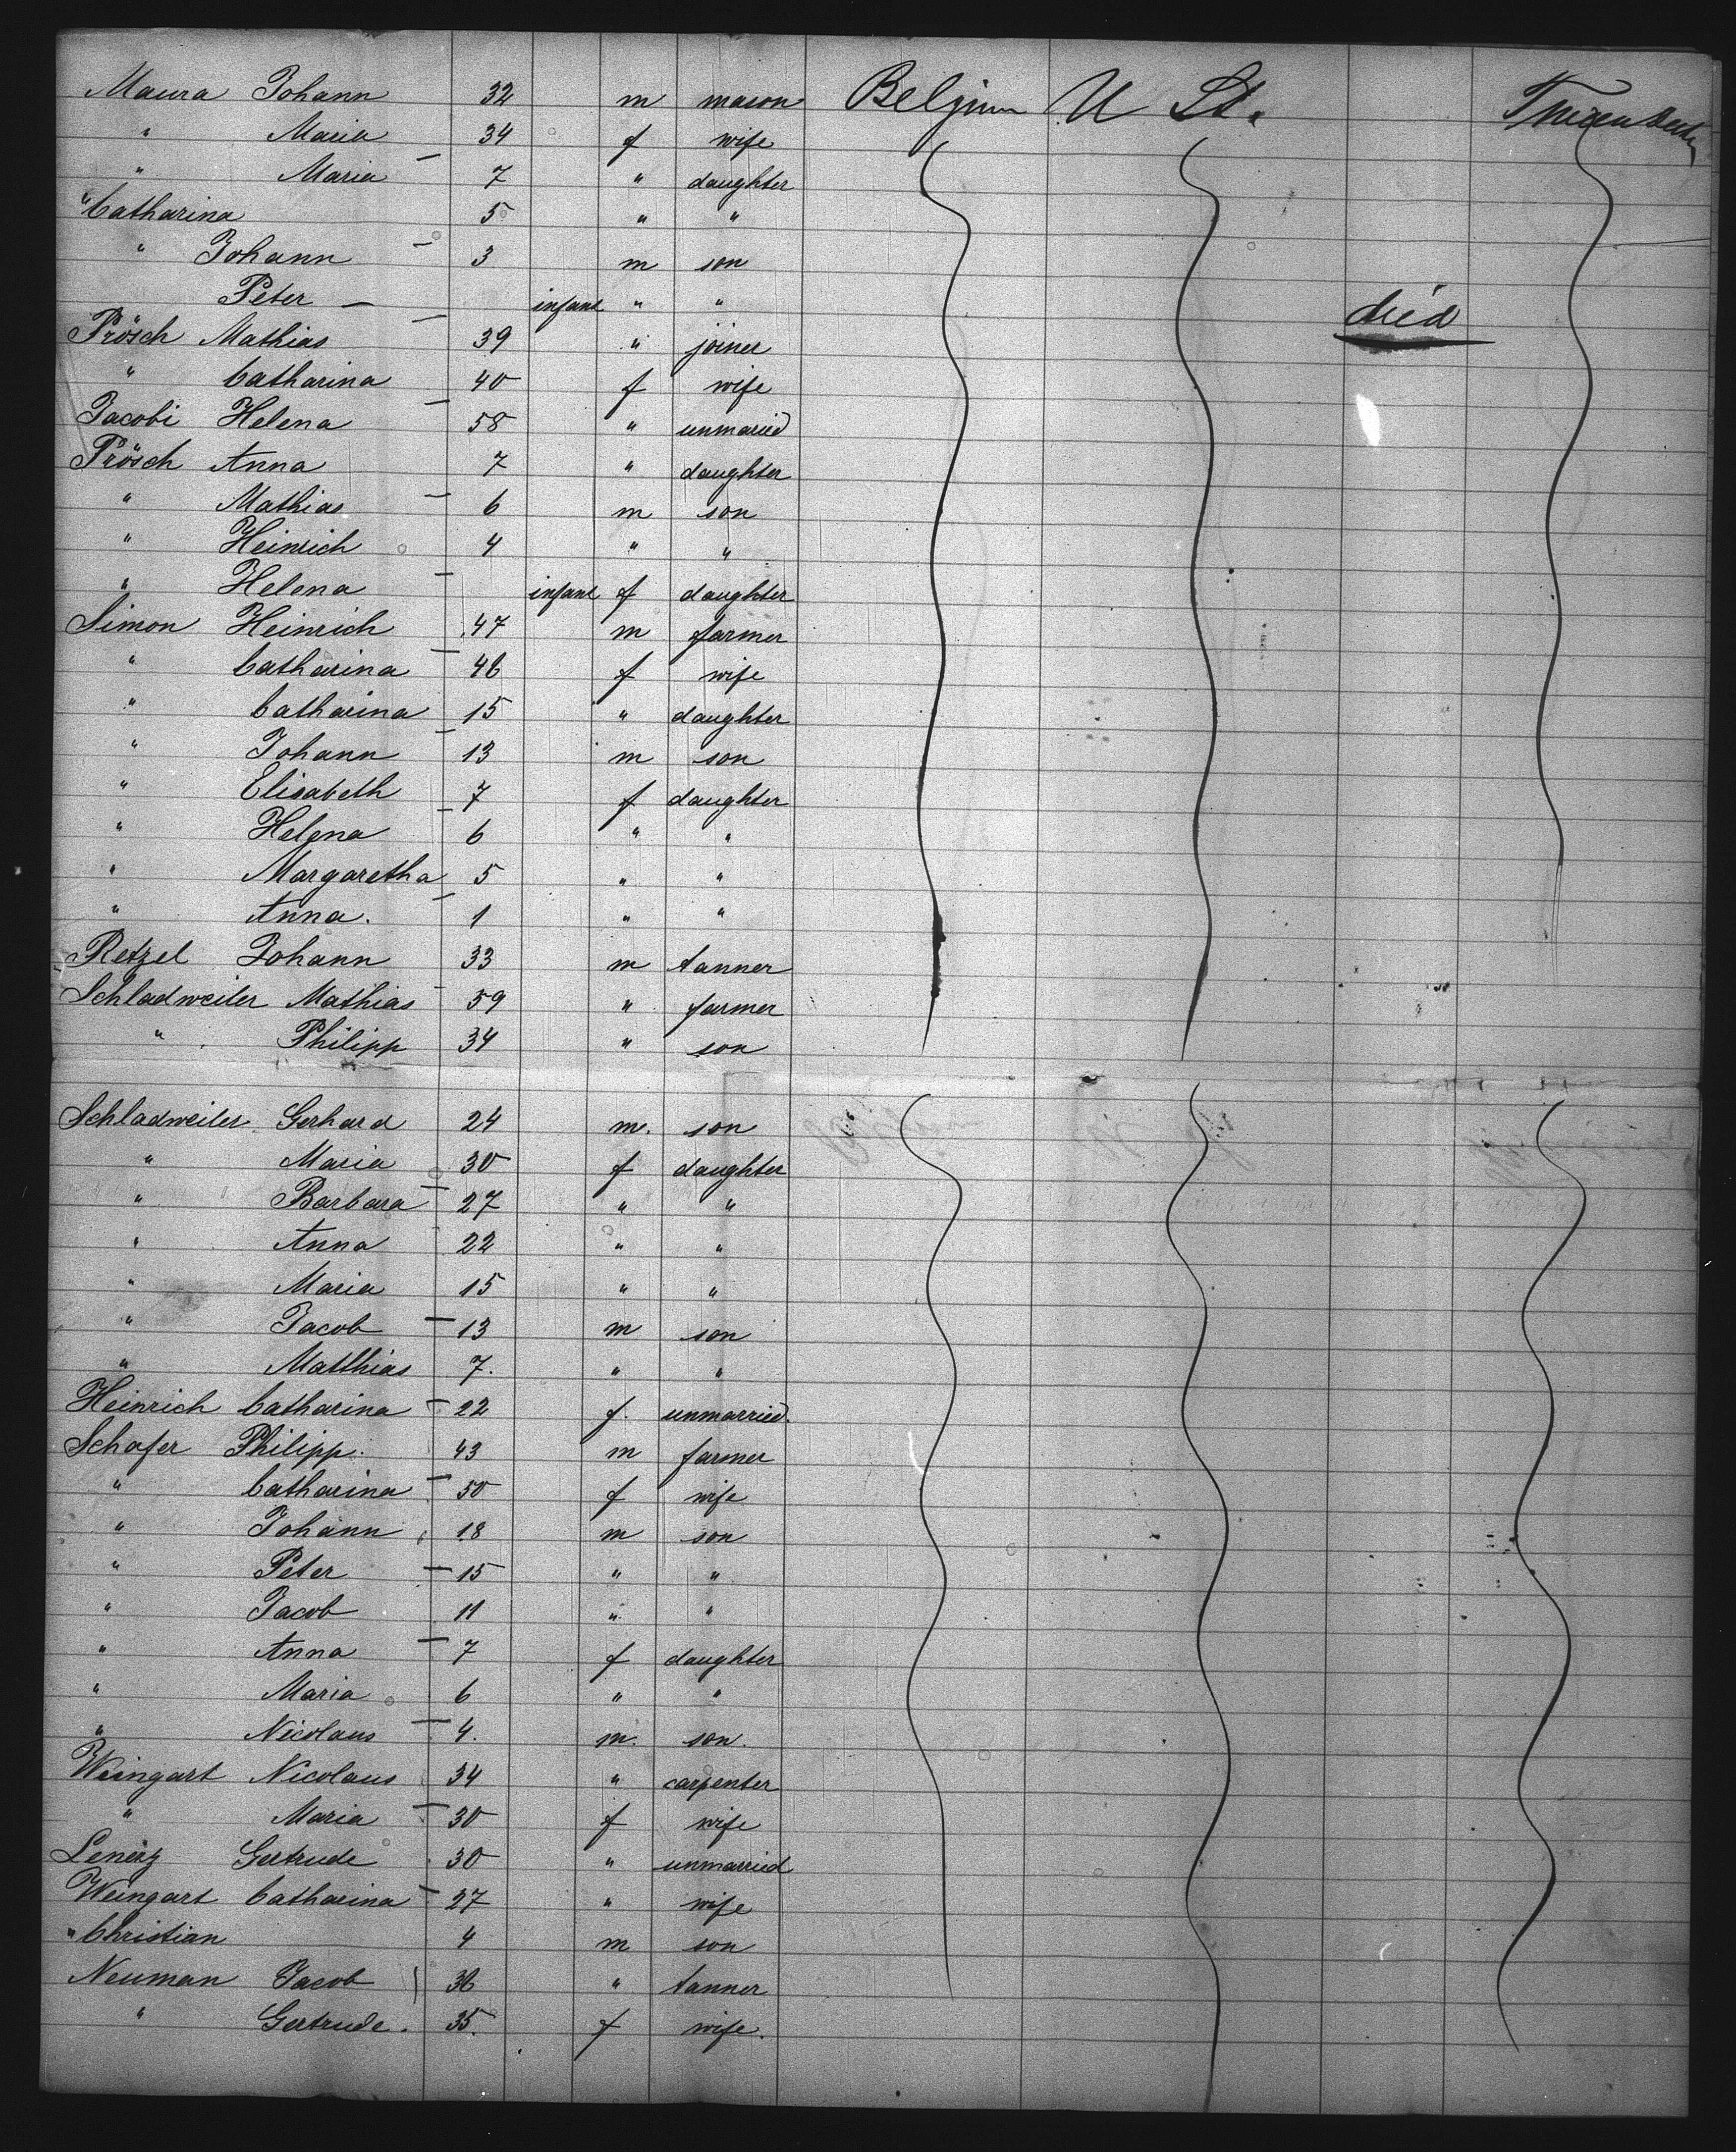 Maura Johann 32 m mason Belgium U St.
" Maria 34 f wife
" Maria 7 " daughter
" Catharina 5 " "
" Johann 3 m son
Peter infant " " died
Prösch Mathias 39 " joiner
" Catharina 40 f wife
Jacobi Helena 58 " unmaried
Prösch Anna 7 " daughter
" Mathias 6 m son
" Heinrich 4 " "
" Helena infant f daughter
Simon Heinrich 47 m farmer
" Catharina 46 f wife
" Catharina 15 " daughter
" Johann 13 m son
" Elisabeth 7 f daughter
" Helena 6 " "
" Margaretha 5 " "
" Anna. 1 " "
Retzel Johann 33 m tanner
Schladweiler Mathias 59 " farmer
" Philipp 34 " son
Schladweiler Gerhard 24 m. son
" Maria 30 f daughter
" Barbara 27 " "
" Anna 22 " "
" Maria 15 " "
" Jacob 13 m son
" Matthias 7. " "
Heinrich Catharina 22 f. unmarried.
Schafer Philipp. 43 m farmer
" Catharina 50 f wife
" Johann 18 m son
" Peter 15 " "
" Jacob 11 " "
" Anna 7 f daughter
" Maria 6 " "
" Nicolaus 4. m. son.
Weingart Nicolaus 34 " carpenter
" Maria 30 f wife
Lenerz Gertrude 30 " unmarried
Weingart Catharina 27 " wife
" Christian 4 m son
Neuman Jacob 36 " tanner
" Gertrude. 35. f wife.